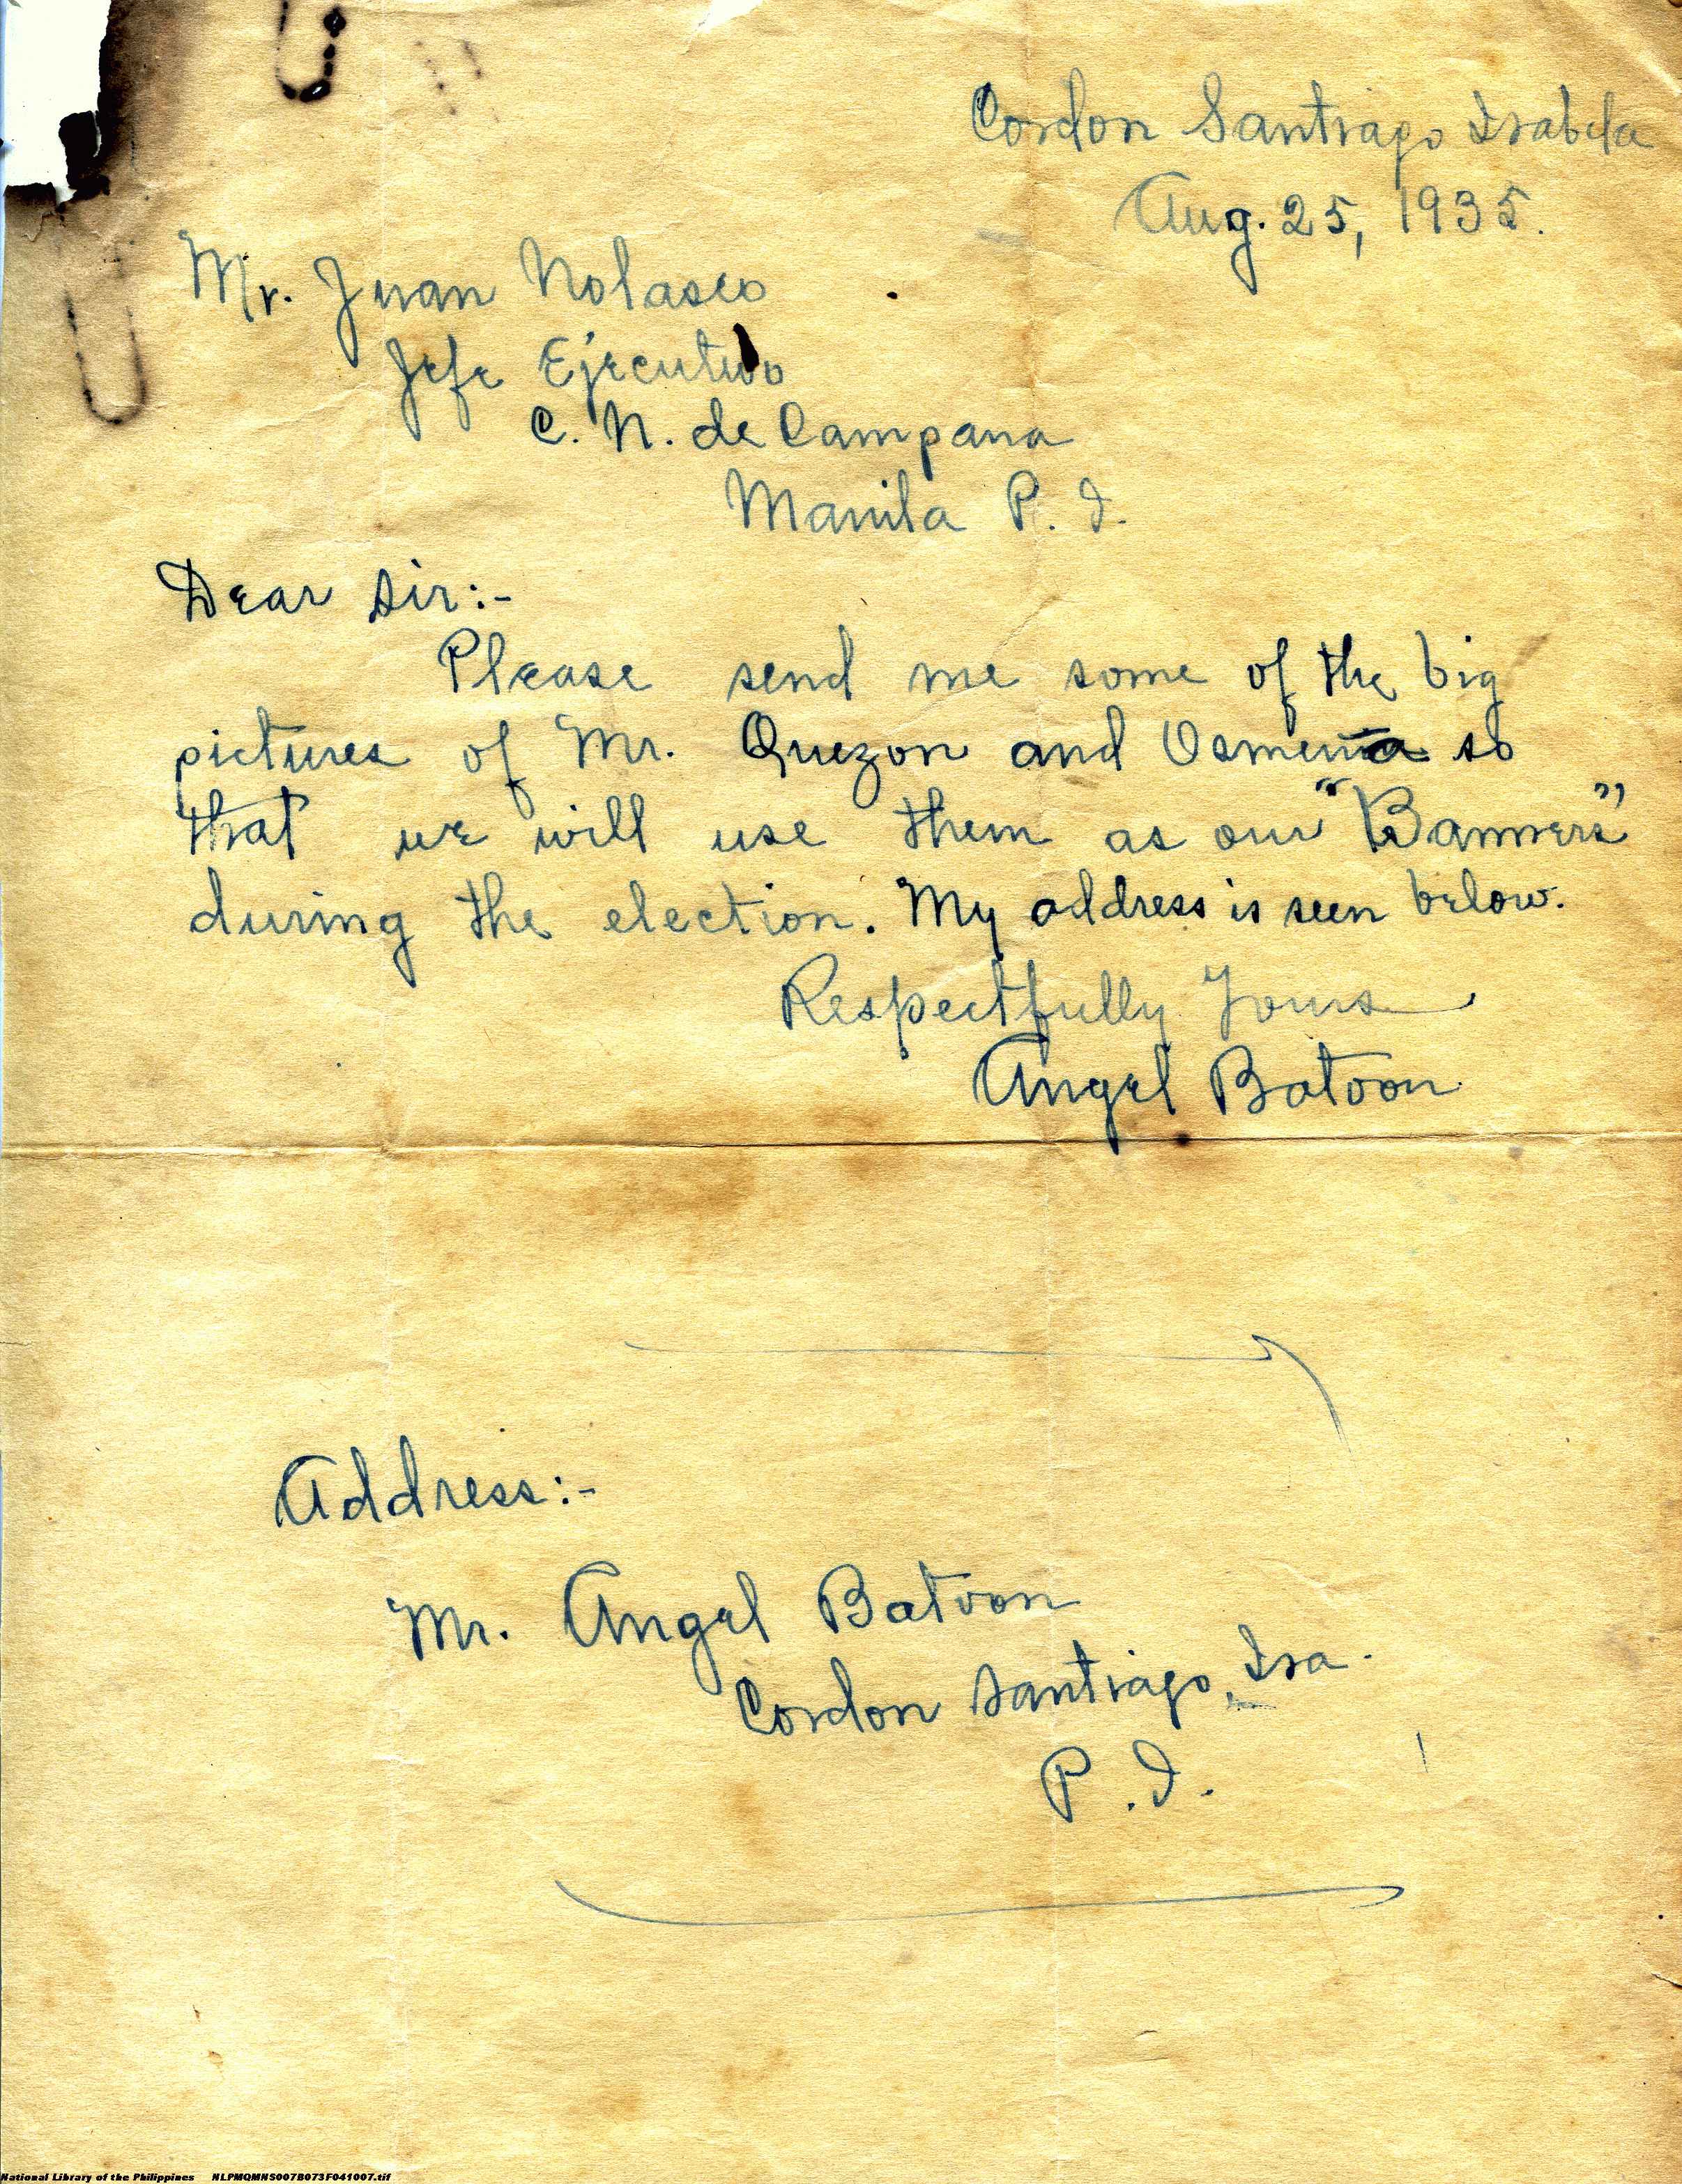 Cordon Santiago Isabela
Aug. 25, 1935.
Mr. Juan Nolasco
Jefe Ejecutivo
C. N. de Campana
Manila P. I.
Dear Sir:-
Please send me some of the big
pictures of Mr. Quezon and Osmeña so
that we will use them as our "Banners"
during the election. My address is seen below.
Respectfully Yours
Angel Batoon
Address:-
Mr. Angel Batoon
Cordon Santiago, Isa.
P. I.
National Library of the Philippines NLPMQMNS007B073F041007.tif